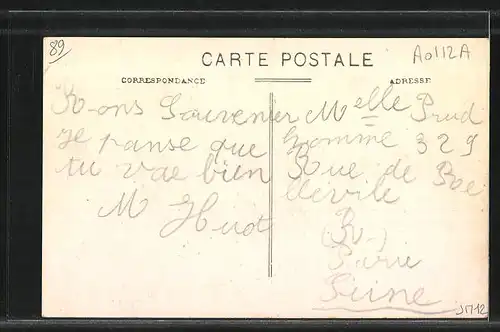 89
CARTE POSTALE
A0112A
CORRESPONDANCE
ADRESSE
Bons Souvenir
je panse que
tu vae bien
M Huot
Melle Prud
homme 329
Rue de Bee
lleville
(B.)
Parie
Seine
J1712